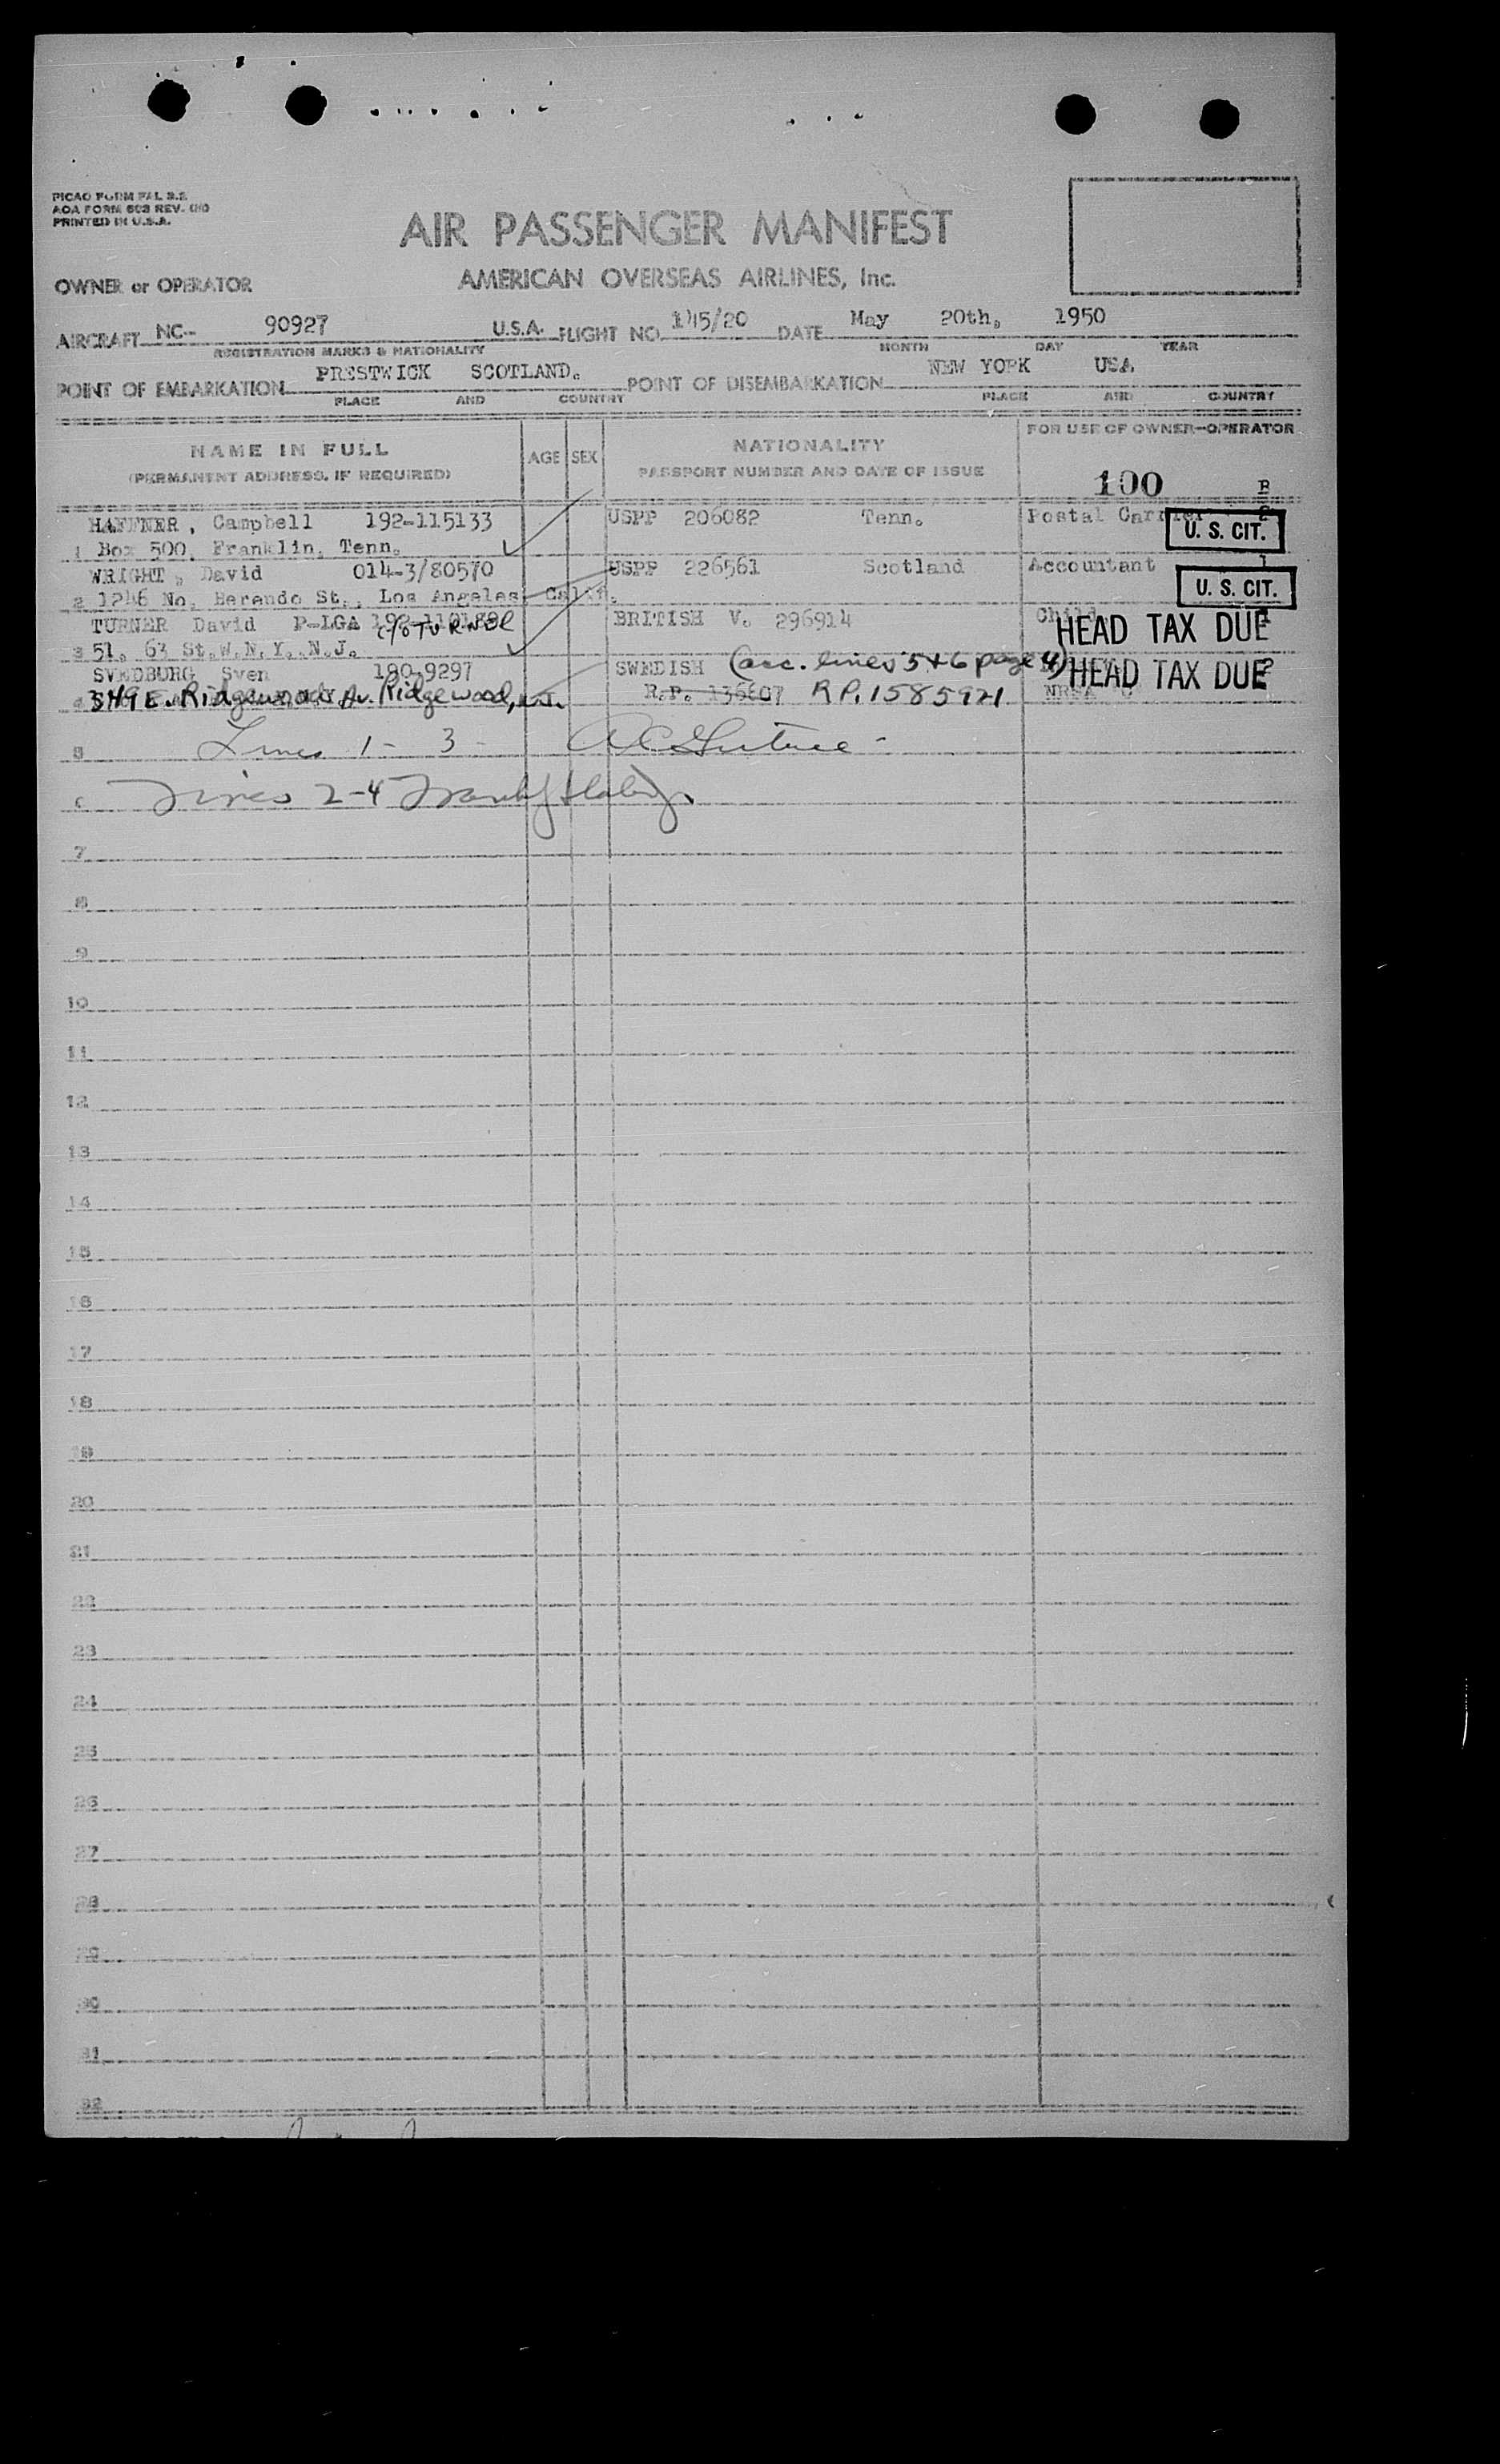 PICAO FORM FAL 2.2
AOA FORM 602 REV.
PRINTED IN U.S.A.
AIR PASSENGER MANIFEST
OWNER or OPERATOR
AMERICAN OVERSEAS AIRLINES, Inc.
AIRCRAFT NC- 90927 U.S.A. FLIGHT NO. 145/20 DATE May 20th, 1950
REGISTRATION MARKS & NATIONALITY MONTH DAY YEAR
POINT OF EMBARKATION PRESTWICK SCOTLAND. POINT OF DISEMBARKATION NEW YORK USA
PLACE AND COUNTRY PLACE AND COUNTRY
NAME IN FULL AGE SEX NATIONALITY FOR USE OF OWNER-OPERATOR
(PERMANENT ADDRESS, IF REQUIRED) PASSPORT NUMBER AND DATE OF ISSUE
100 B
HAFFNER, Campbell 192-115133 USPP 206082 Tenn. Postal Carrier 2
U. S. CIT.
1 Box 500, Franklin, Tenn.
WRIGHT, David 014-3/80570 USPP 226561 Scotland Accountant 1
U. S. CIT.
2 1246 No. Berendo St., Los Angeles Calif.
TURNER David P-LGA BRITISH V. 296914 Child
HEAD TAX DUE
3 51, 63 St.W.N.Y. N.J. c/o TURNBL
SVEDBURG Sven 190-9297 SWEDISH (acc. lines 5+6 page 4) 2
HEAD TAX DUE
4 349 E. Ridgewood Av. Ridgewood, N.J. R.P. 136607 R.P. 1585921
5 Lines 1 - 3 -
6 Lines 2-4
7
8
9
10
11
12
13
14
15
16
17
18
19
20
21
22
23
24
25
26
27
28
29
30
31
32